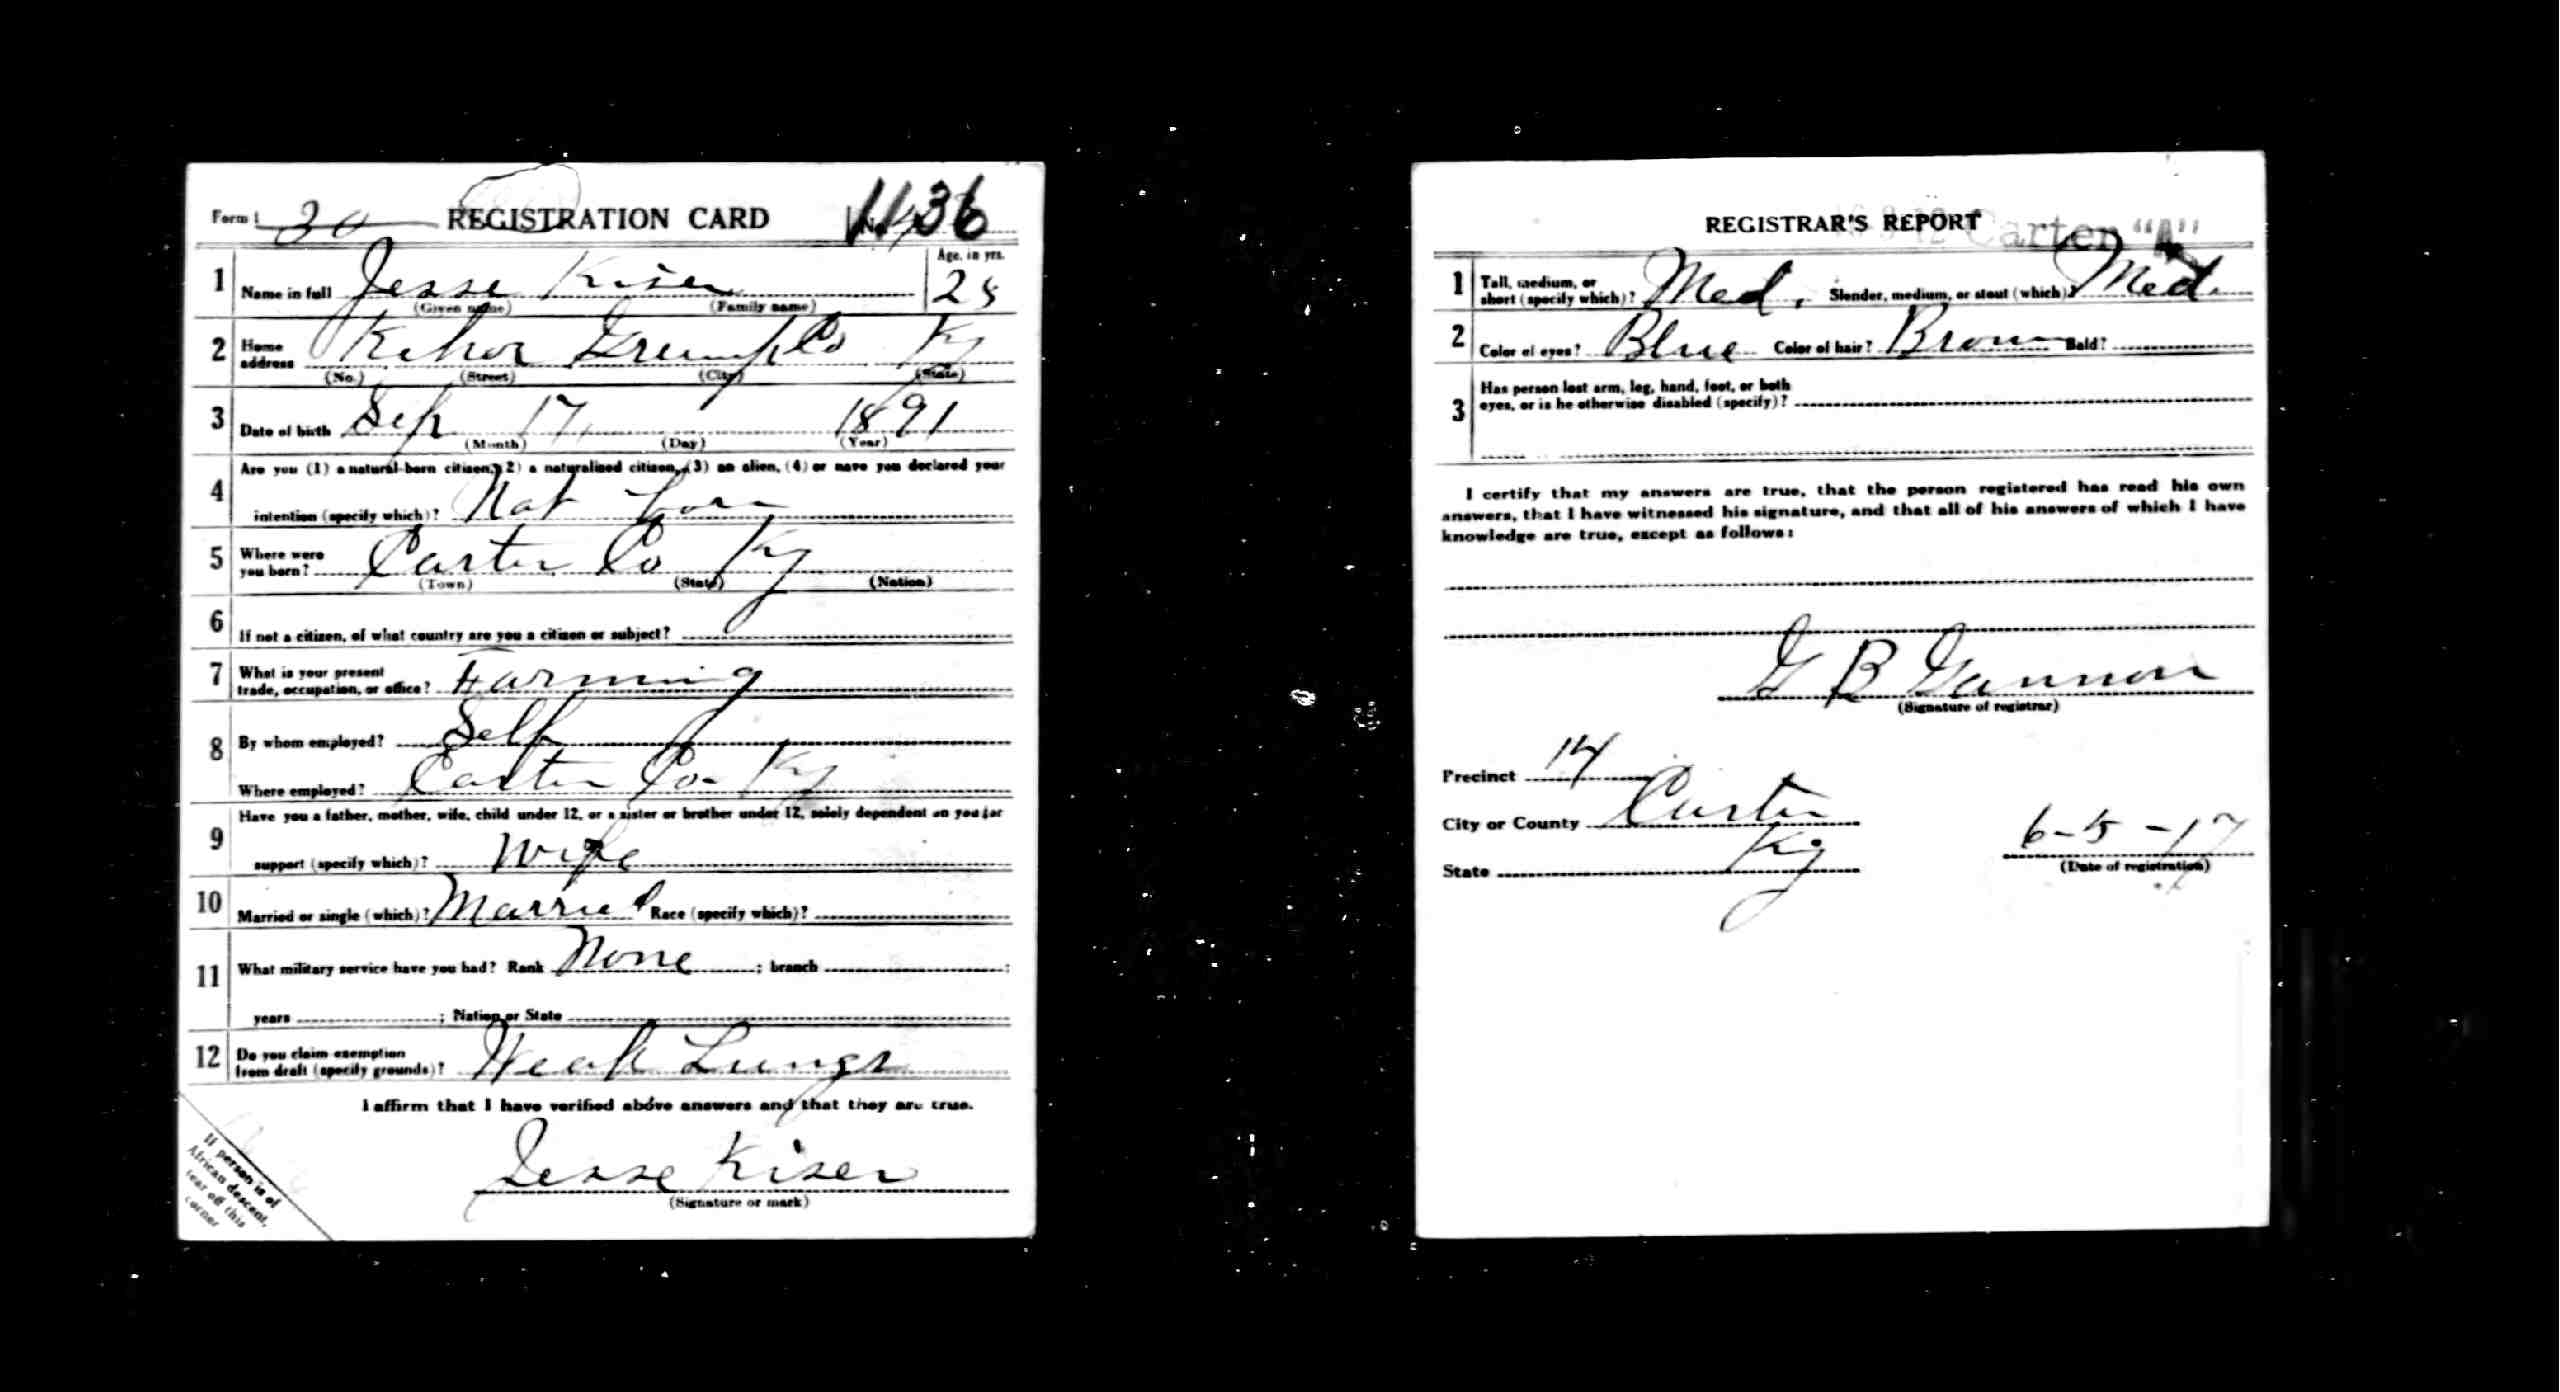 Form 1 30 REGISTRATION CARD No. 1136
1 Name in full Jesse Kiser Age, in yrs. 25
(Given name) (Family name)
2 Home address Kehoe Greenup Co Ky
(No.) (Street) (City) (State)
3 Date of birth Sep 17, 1891
(Month) (Day) (Year)
4 Are you (1) a natural-born citizen, (2) a naturalized citizen, (3) an alien, (4) or have you declared your
intention (specify which)? Nat born
5 Where were you born? Carter Co Ky
(Town) (State) (Nation)
6 If not a citizen, of what country are you a citizen or subject?
7 What is your present trade, occupation, or office? Farming
8 By whom employed? Self
Where employed? Carter Co - Ky
9 Have you a father, mother, wife, child under 12, or a sister or brother under 12, solely dependent on you for
support (specify which)? Wife
10 Married or single (which)? Married Race (specify which)?
11 What military service have you had? Rank None ; branch ;
years ; Nation or State
12 Do you claim exemption from draft (specify grounds)? Weak Lungs
I affirm that I have verified above answers and that they are true.
Jesse Kiser
(Signature or mark)
If person is of
African descent,
tear off this
corner
REGISTRAR'S REPORT Carter "A"
1 Tall, medium, or short (specify which)? Med. Slender, medium, or stout (which)? Med.
2 Color of eyes? Blue Color of hair? Brown Bald?
3 Has person lost arm, leg, hand, foot, or both
eyes, or is he otherwise disabled (specify)?
I certify that my answers are true, that the person registered has read his own
answers, that I have witnessed his signature, and that all of his answers of which I have
knowledge are true, except as follows:
G B Gannon
(Signature of registrar)
Precinct 14
City or County Carter
State Ky 6-5-17
(Date of registration)